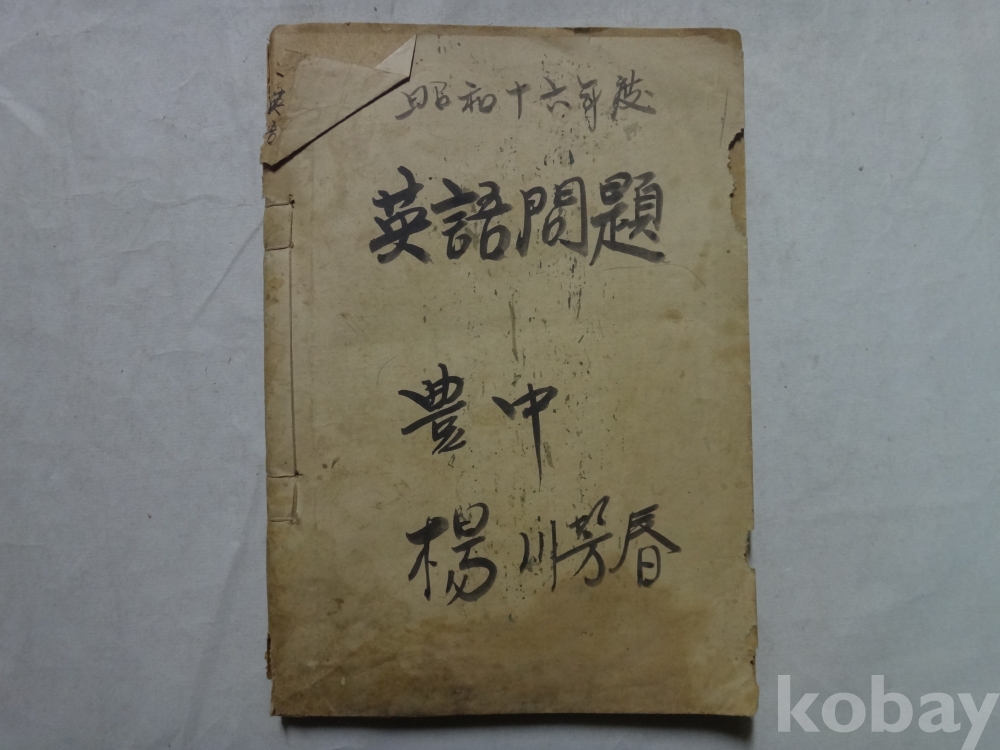 昭和十六年度
英語問題
豊中
楊川芳春
kobay